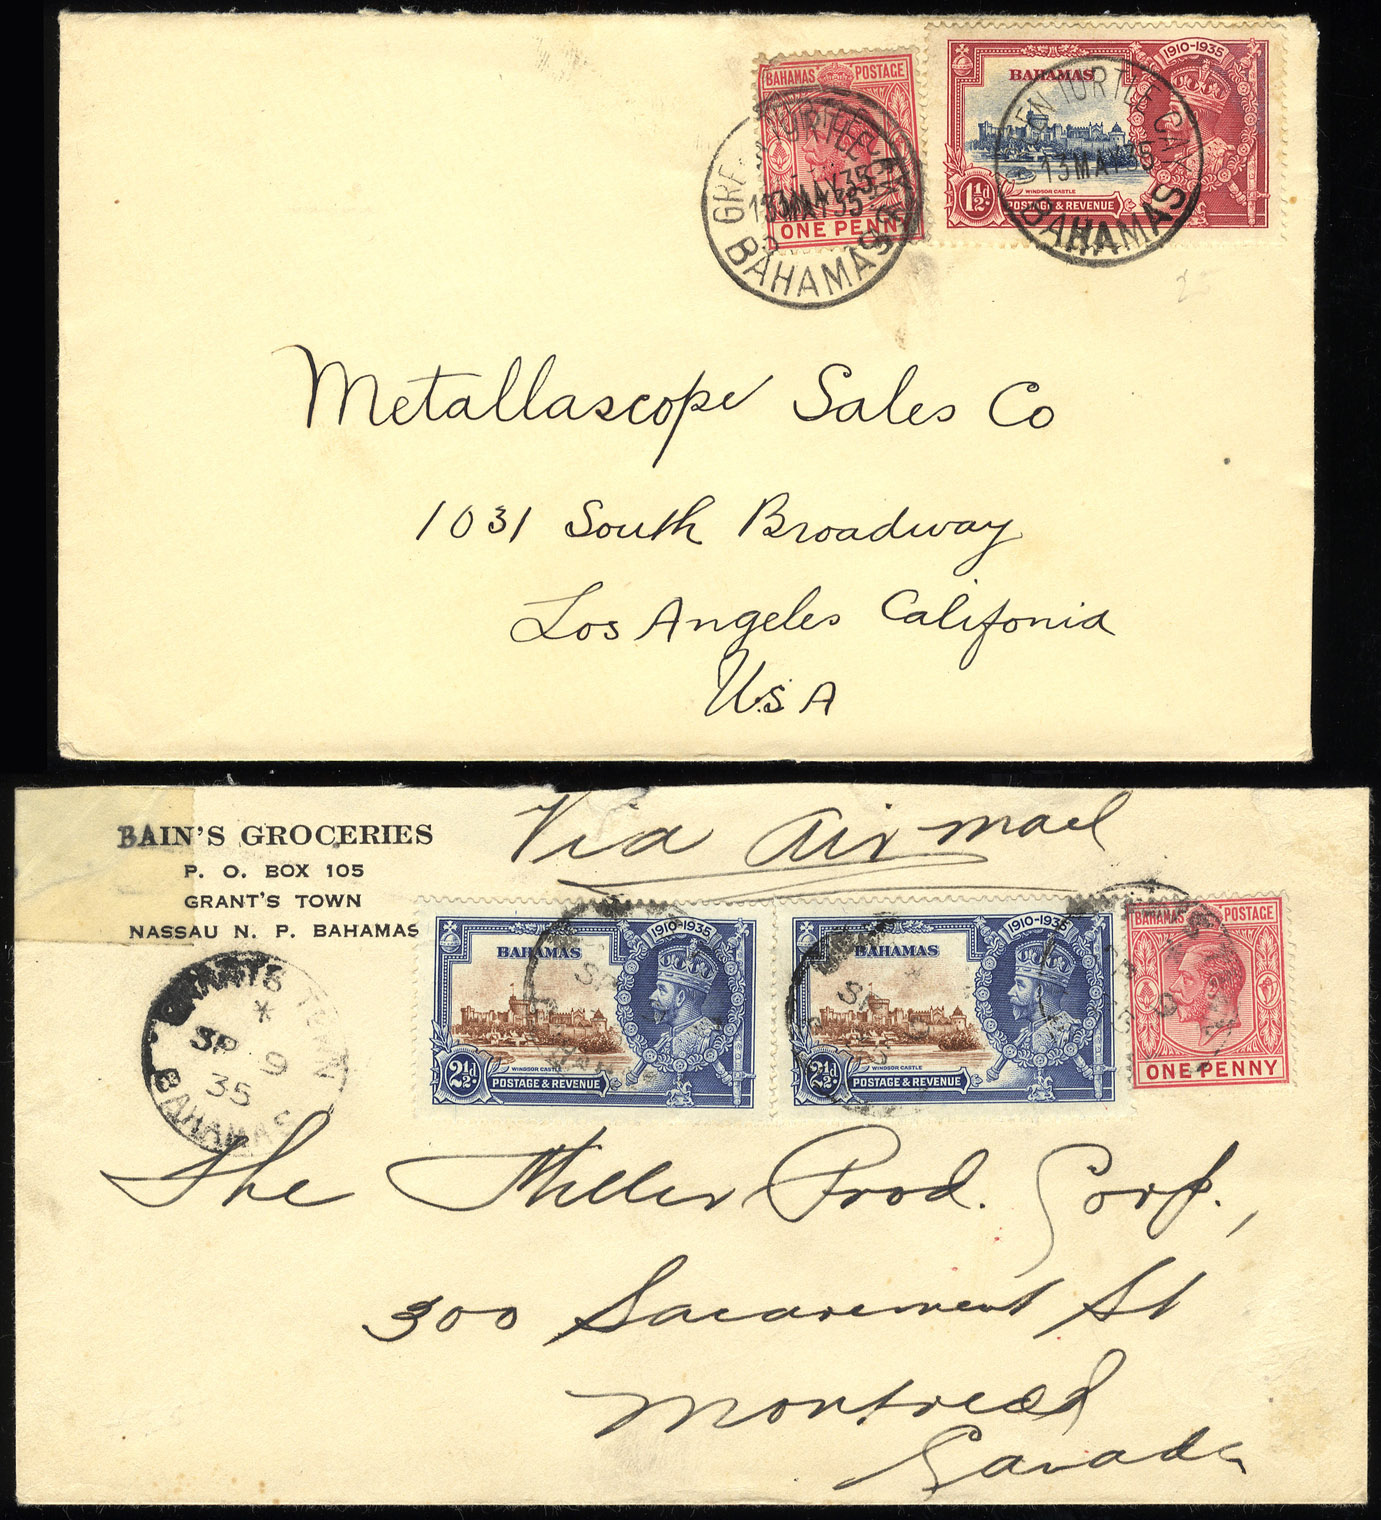 BAHAMAS POSTAGE
ONE PENNY
GREEN TURTLE CAY
13 MAY 35
BAHAMAS
1910-1935
BAHAMAS
1½d.
WINDSOR CASTLE
POSTAGE & REVENUE
GREEN TURTLE CAY
13 MAY 35
BAHAMAS
Metallascope Sales Co
1031 South Broadway
Los Angeles Califonia
U.S A
BAIN'S GROCERIES
P. O. BOX 105
GRANT'S TOWN
NASSAU N. P. BAHAMAS
Via Air mail
GRANTS TOWN
SP 9
35
BAHAMAS
1910-1935
BAHAMAS
2½d.
WINDSOR CASTLE
POSTAGE & REVENUE
1910-1935
BAHAMAS
2½d.
WINDSOR CASTLE
POSTAGE & REVENUE
BAHAMAS POSTAGE
ONE PENNY
The Miller Prod. Corp.,
300 Sacarement St
Montreal
Canada